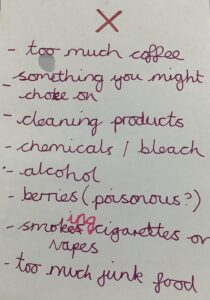 - too much coffee
- something you might
choke on
- cleaning products
- chemicals / bleach
- alcohol
- berries (poisonous?)
- smoking cigarettes or
vapes
- too much junk food